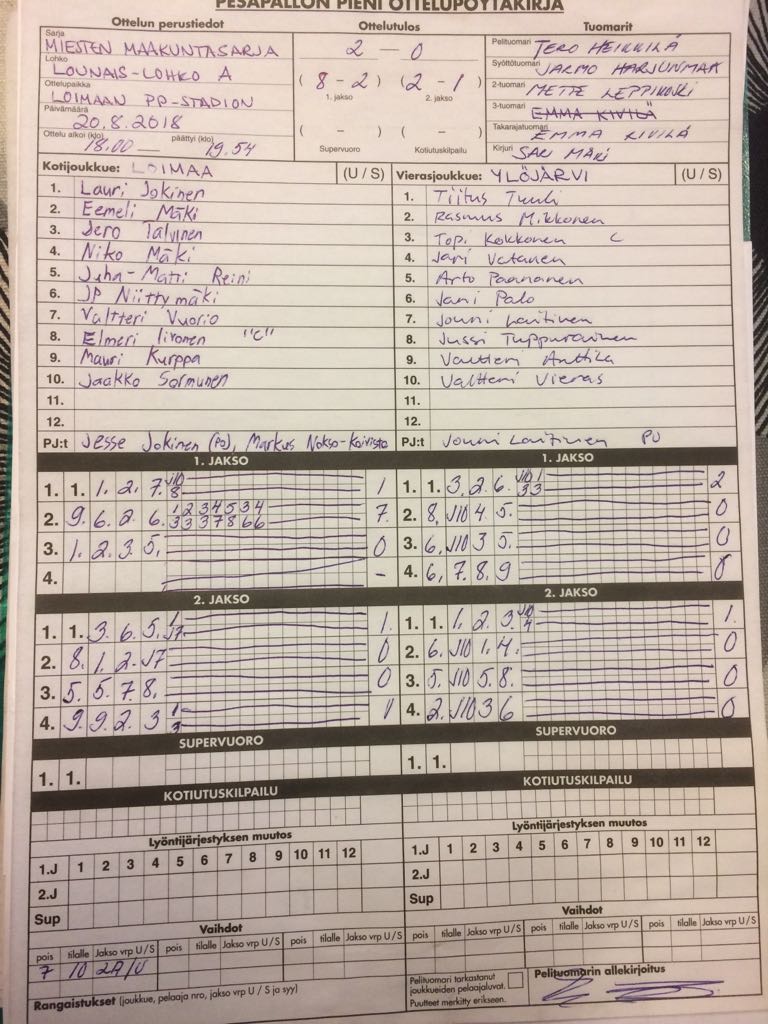 PESÄPALLON PIENI OTTELUPÖYTÄKIRJA
Ottelun perustiedot
Ottelutulos
Tuomarit
Sarja
MIESTEN MAAKUNTASARJA
Lohko
LOUNAIS-LOHKO A
Ottelupaikka
LOIMAAN PP-STADION
Päivämäärä
20.8.2018
Ottelu alkoi (klo) 18.00 — päättyi (klo) 19.54
2 — 0
( 8 - 2 ) ( 2 - 1 )
1. jakso 2. jakso
( - ) ( - )
Supervuoro Kotiutuskilpailu
Pelituomari TERO HEIKKILÄ
Syöttötuomari JARMO HARJUNMAA
2-tuomari METTE LEPPIKOSKI
3-tuomari EMMA KIVILÄ
Takarajatuomari EMMA KIVILÄ
Kirjuri SARI MÄKI
Kotijoukkue: LOIMAA (U / S)
1. Lauri Jokinen
2. Eemeli Mäki
3. Jero Talvinen
4. Niko Mäki
5. Juha-Matti Reini
6. JP Niittymäki
7. Valtteri Vuorio
8. Elmeri Iivonen "C"
9. Mauri Kurppa
10. Jaakko Sormunen
11.
12.
PJ:t Jesse Jokinen (PJ), Markus Nokso-Koivisto
Vierasjoukkue: YLÖJÄRVI (U / S)
1. Tiitus Tuuli
2. Rasmus Mikkonen
3. Topi Kokkonen C
4. Jari Vatanen
5. Arto Paananen
6. Jani Palo
7. Jouni Laitinen
8. Jussi Tuppurainen
9. Valtteri Anttila
10. Valtteri Vieras
11.
12.
PJ:t Jouni Laitinen PJ
1. JAKSO
1. 1. 1. 2. 7. J10 8 1
2. 9. 6. 2. 6. 1 2 3 4 5 3 4 3 3 3 7 8 6 6 7
3. 1. 2. 3. 5. 0
4. -
1. JAKSO
1. 1. 3. 2. 6. J10 1 3 3 2
2. 8. J10 4. 5. 0
3. 6. J10 3 5. 0
4. 6. 7. 8. 9 0
2. JAKSO
1. 1. 3. 6. 5. 1 J7 1.
2. 8. 1. 2. J7 0
3. 5. 5. 7. 8. 0
4. 9. 9. 2. 3 1 3 1
2. JAKSO
1. 1. 1. 2. 3. J10 4 1.
2. 6. J10 1. 4. 0
3. 5. J10 5. 8. 0
4. 2. J10 3 6 0
SUPERVUORO
1. 1.
SUPERVUORO
1. 1.
KOTIUTUSKILPAILU
KOTIUTUSKILPAILU
Lyöntijärjestyksen muutos
1.J 1 2 3 4 5 6 7 8 9 10 11 12
2.J
Sup
Lyöntijärjestyksen muutos
1.J 1 2 3 4 5 6 7 8 9 10 11 12
2.J
Sup
Vaihdot
pois tilalle Jakso vrp U/S pois tilalle Jakso vrp U/S pois tilalle Jakso vrp U/S
7 10 2A/U
Vaihdot
pois tilalle Jakso vrp U/S pois tilalle Jakso vrp U/S pois tilalle Jakso vrp U/S
Rangaistukset (joukkue, pelaaja nro, jakso vrp U / S ja syy)
Pelituomari tarkastanut
joukkueiden pelaajaluvat.
Puutteet merkitty erikseen.
Pelituomarin allekirjoitus